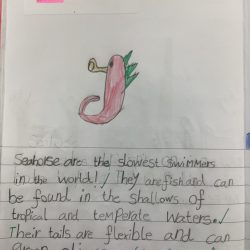 Seahorse are the slowest swimmers
in the world! They are fish and can
be found in the shallows of
tropical and temperate waters.
Their tails are flexible and can